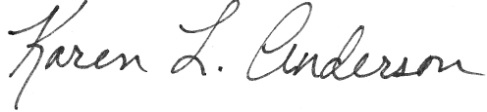 Karen L. Anderson